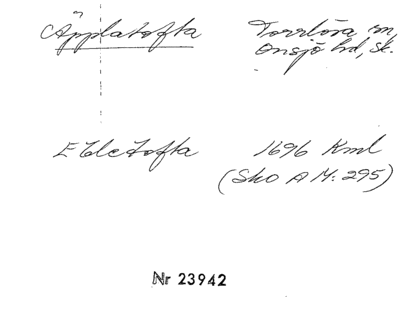 Äpplatofta Torrlösa sn,
Onsjö hd, Sk.
Ebletofta 1696 Kml
(Sko A M: 295)
Nr 23942